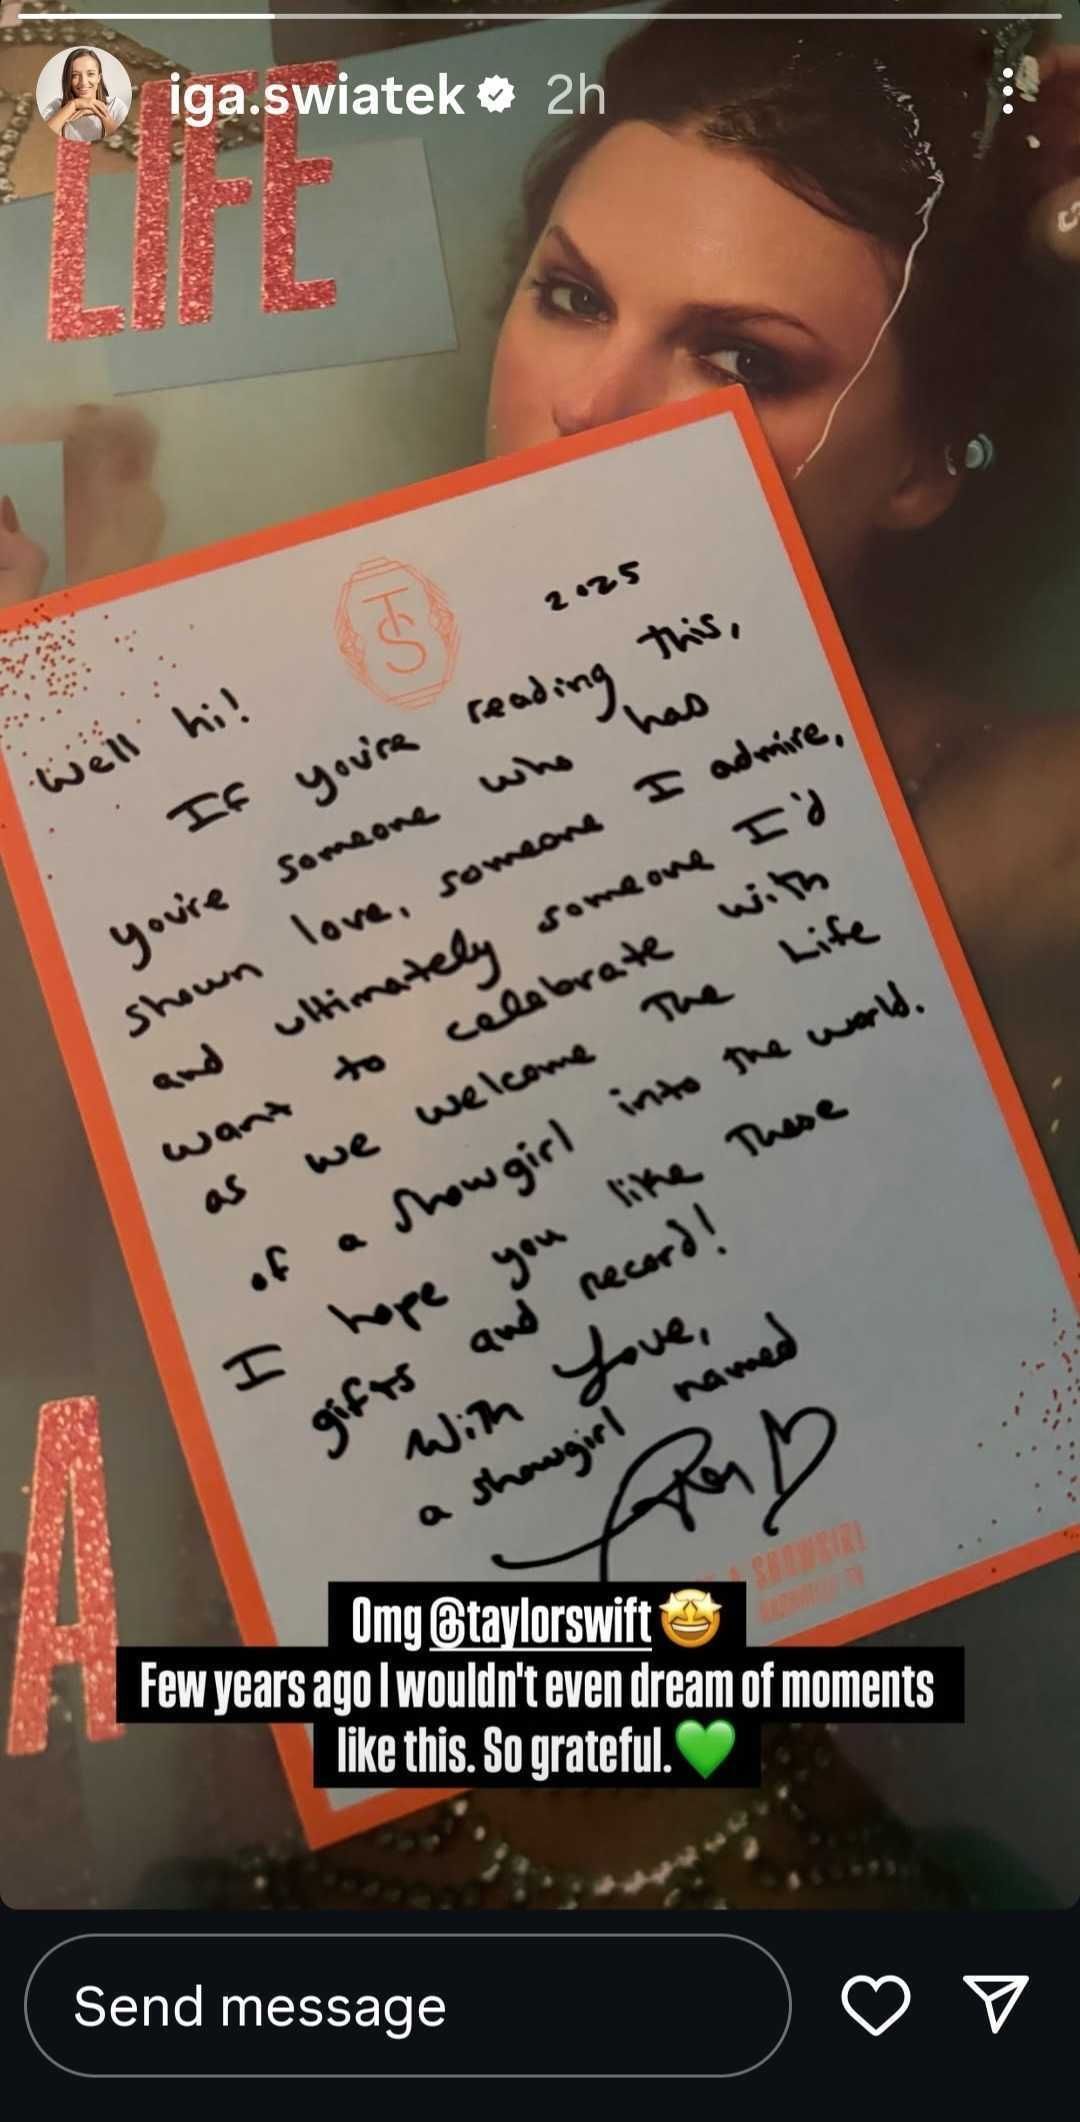 iga.swiatek 2h
LIFE
TS
2025
Well hi!
If you're reading this,
you're someone who has
shown love, someone I admire,
and ultimately someone I'd
want to celebrate with
as we welcome The Life
of a Showgirl into the world.
I hope you like these
gifts and record!
With Love,
a showgirl named
A
A SHOWGIRL
Omg @taylorswift 🤩
Few years ago I wouldn't even dream of moments
like this. So grateful. 💚
Send message